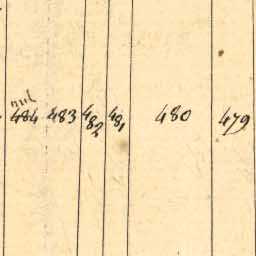 484 483 482 481 480 479